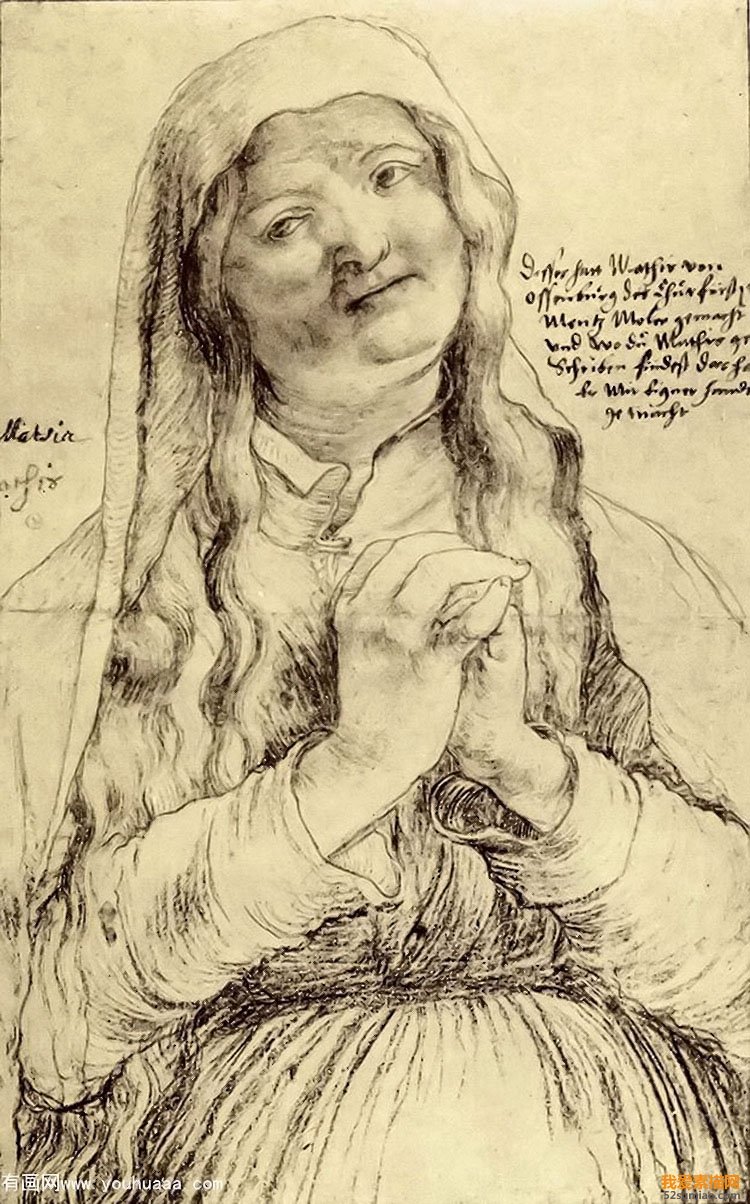 Disses hatt Mathis von
Ossenburg des Churfürst v
Mentz Moler gemacht
und wo du Mathis ge
Schriben findest das ha
er Mit Eigner handt
ge macht
athis
有画网www.youhuaaa.com
我爱素描网
52sumiao.com